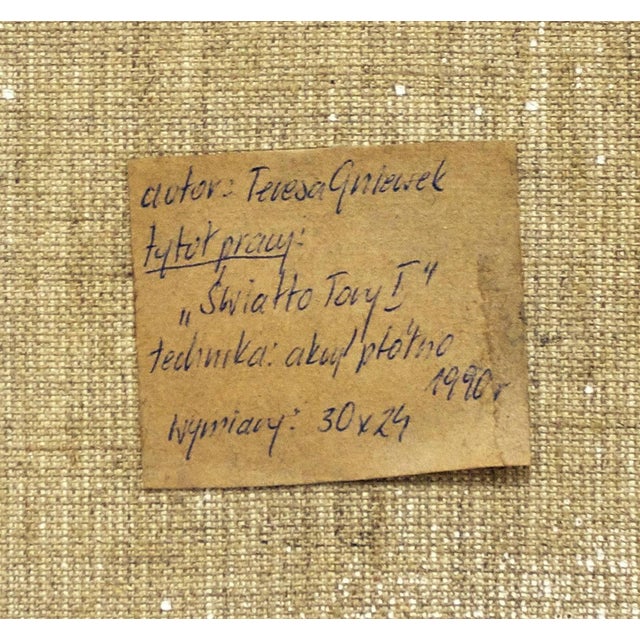 autor: Teresa Gniewek
tytuł pracy:
„Światło Tory I"
technika: akryl płótno
1990 r
Wymiary: 30x24